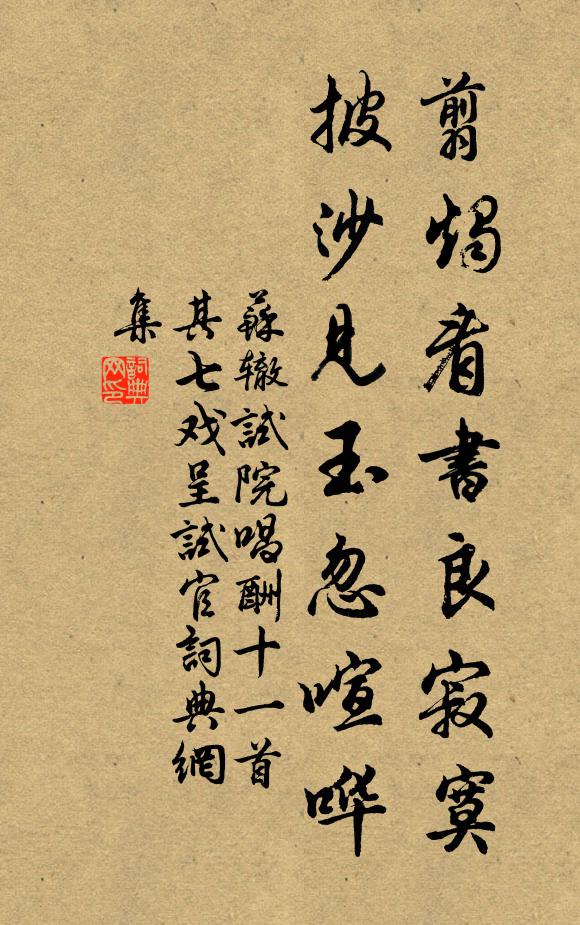 翦燭看書良寂寞
披沙見玉忽喧哗
蘇辙試院唱酬十一首
其七戏呈試官詞典網
集
詞典网印